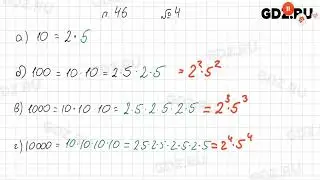 GDZ.RU
п. 46 №4
а) 10 = 2 · 5
б) 100 = 10 · 10 = 2 · 5 · 2 · 5 = 2² · 5²
в) 1000 = 10 · 10 · 10 = 2 · 5 · 2 · 5 · 2 · 5 = 2³ · 5³
г) 10000 = 10 · 10 · 10 · 10 = 2·5·2·5·2·5·2·5 = 2⁴ · 5⁴